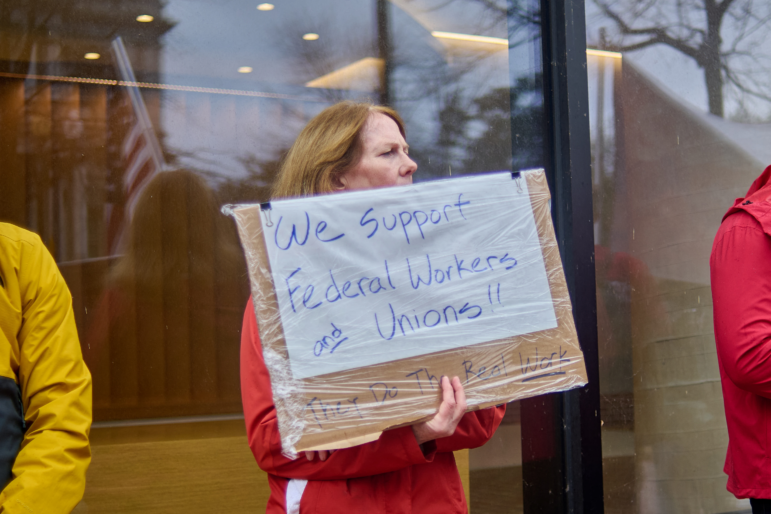 We Support
Federal Workers
and Unions!!
They Do The Real Work